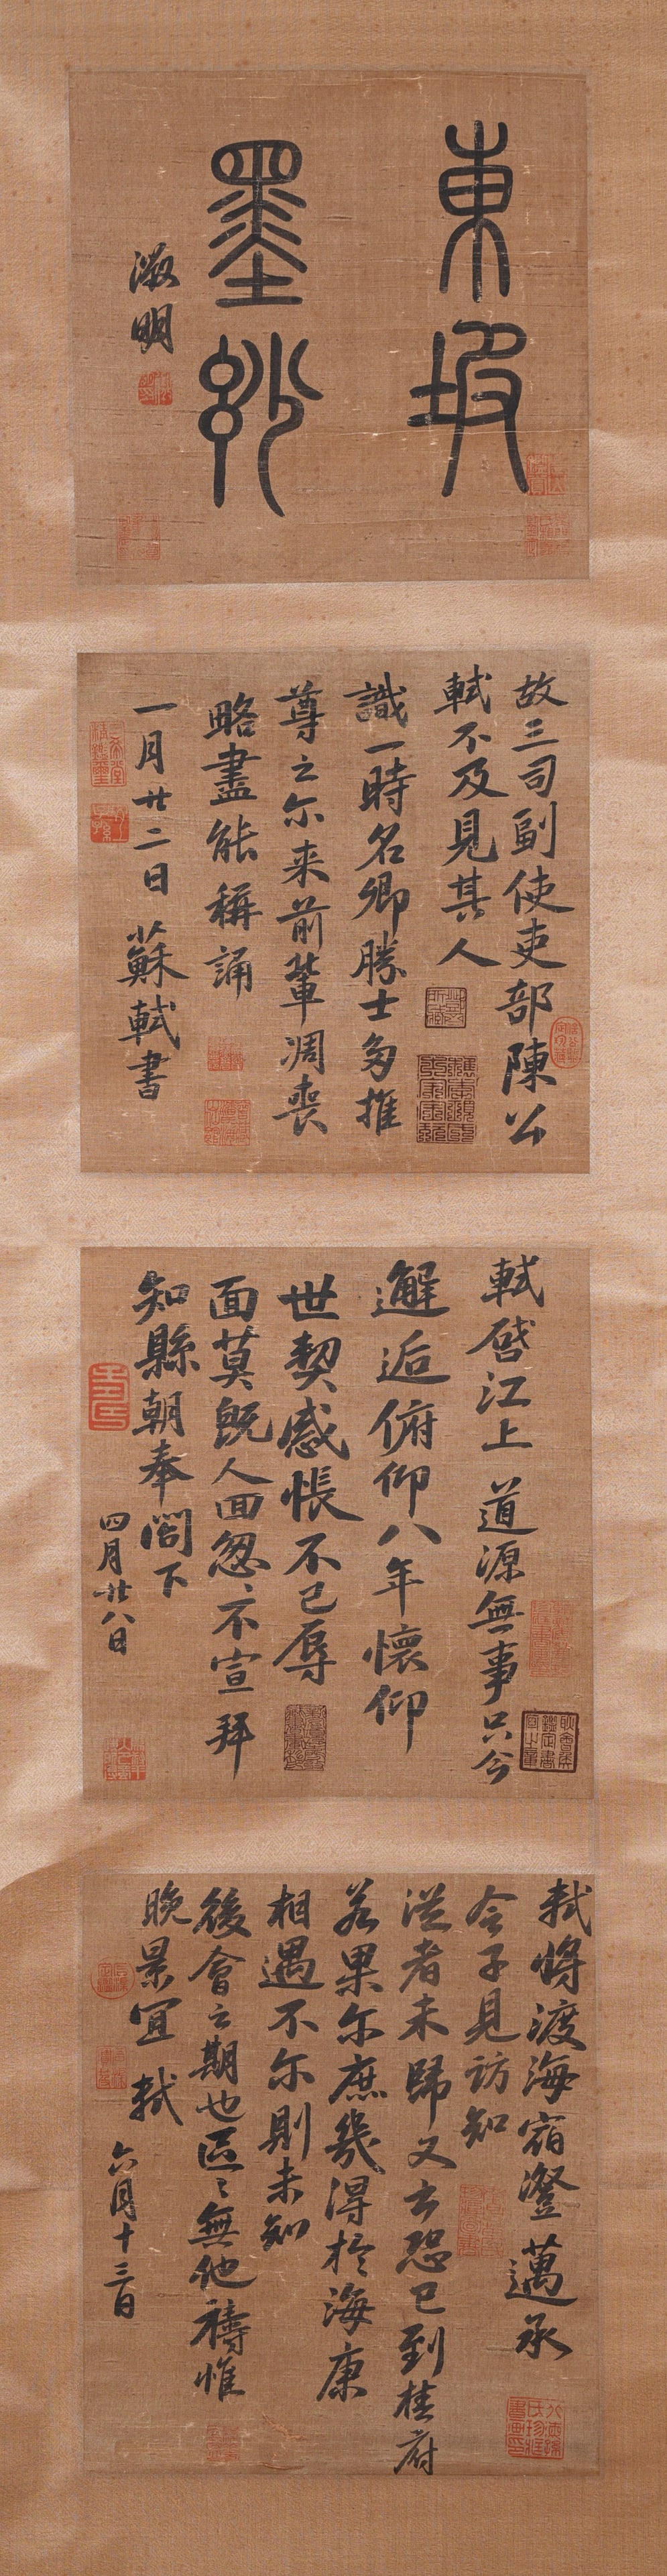 東坡
墨妙
徵明
故三司副使吏部陳公
軾不及見其人
識一時名卿勝士多推
尊之尔来前輩凋喪
略盡能稱誦
一月廿二日 蘇軾書
軾啓江上 道源無事只今
邂逅俯仰八年懷仰
世契感悵不已辱
面莫既人回怱々不宣 拜
知縣朝奉閤下
四月廿八日
軾將渡海宿澄邁承
令子見訪知
從者未歸又云恐已到桂府
若果尔庶幾得於海康
相遇不尔則未知
後會之期也區々無他禱惟
晚景宜 軾
六月十三日